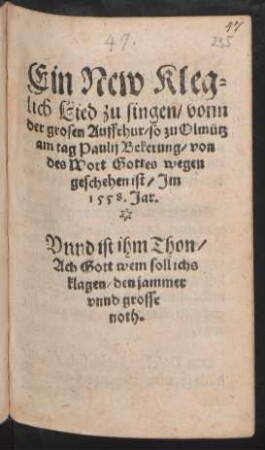 47.
47
235
Ein New Kleg-
lich Lied zu singen/ vonn
der grosen Auffrhur/ so zu Olmütz
am tag Paulij Bekerung/ von
des Wort Gottes wegen
geschehen ist/ Im
1558. Jar.
Vnnd ist ihm Thon/
Ach Gott wem soll ichs
klagen/ den jammer
vnnd grosse
noth.